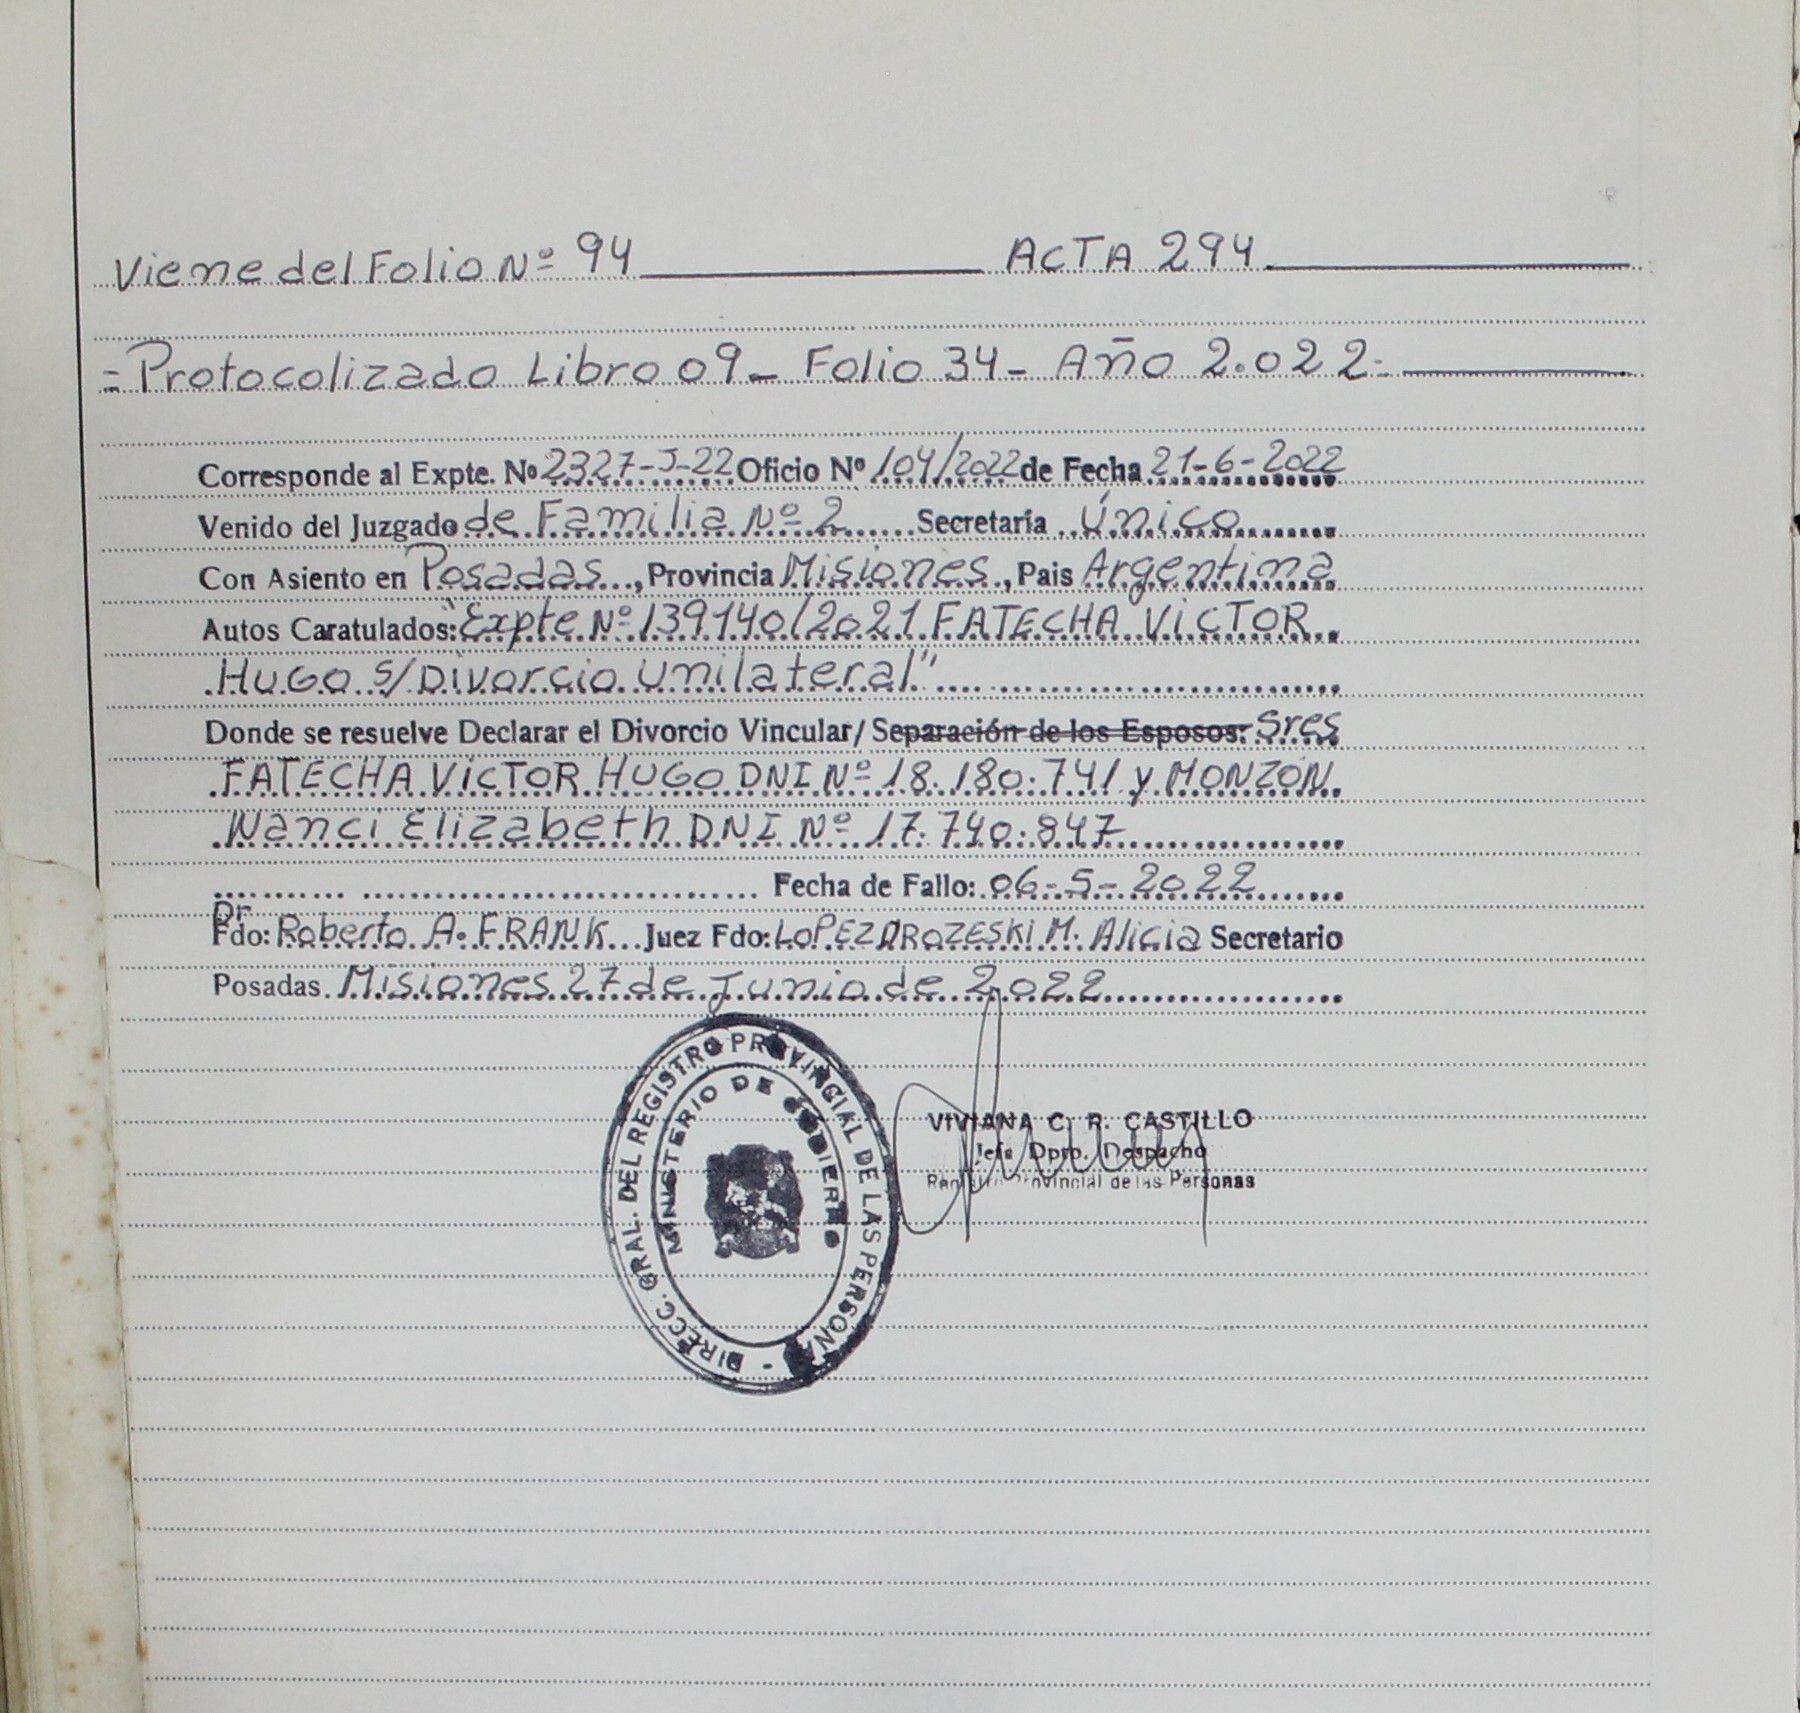 Viene del Folio Nº 94 ACTA 294
=Protocolizado Libro 09_ Folio 34_ Año 2.022=
Corresponde al Expte. Nº 2327-J-22 Oficio Nº 104/2022 de Fecha 21-6-2022
Venido del Juzgado de Familia Nº 2 Secretaria Única
Con Asiento en Posadas, Provincia Misiones, Pais Argentina
Autos Caratulados: "Expte Nº 139140/2021 FATECHA VICTOR
HUGO S/Divorcio Unilateral"
Donde se resuelve Declarar el Divorcio Vincular/ Separación de los Esposos: Sres
FATECHA VICTOR HUGO DNI Nº 18.180.741 y MONZON
Nanci Elizabeth DNI Nº 17.740.847
Fecha de Fallo: 06-5-2022
Dr
Fdo: Roberto A. FRANK Juez Fdo: LOPEZ M. Alicia Secretario
Posadas. Misiones 27 de Junio de 2022
DIRECC. GRAL. DEL REGISTRO PROVINCIAL DE LAS PERSONAS -
MINISTERIO DE GOBIERNO
VIVIANA C. R. CASTILLO
Jefa Dpto. Despacho
Registro Provincial de las Personas